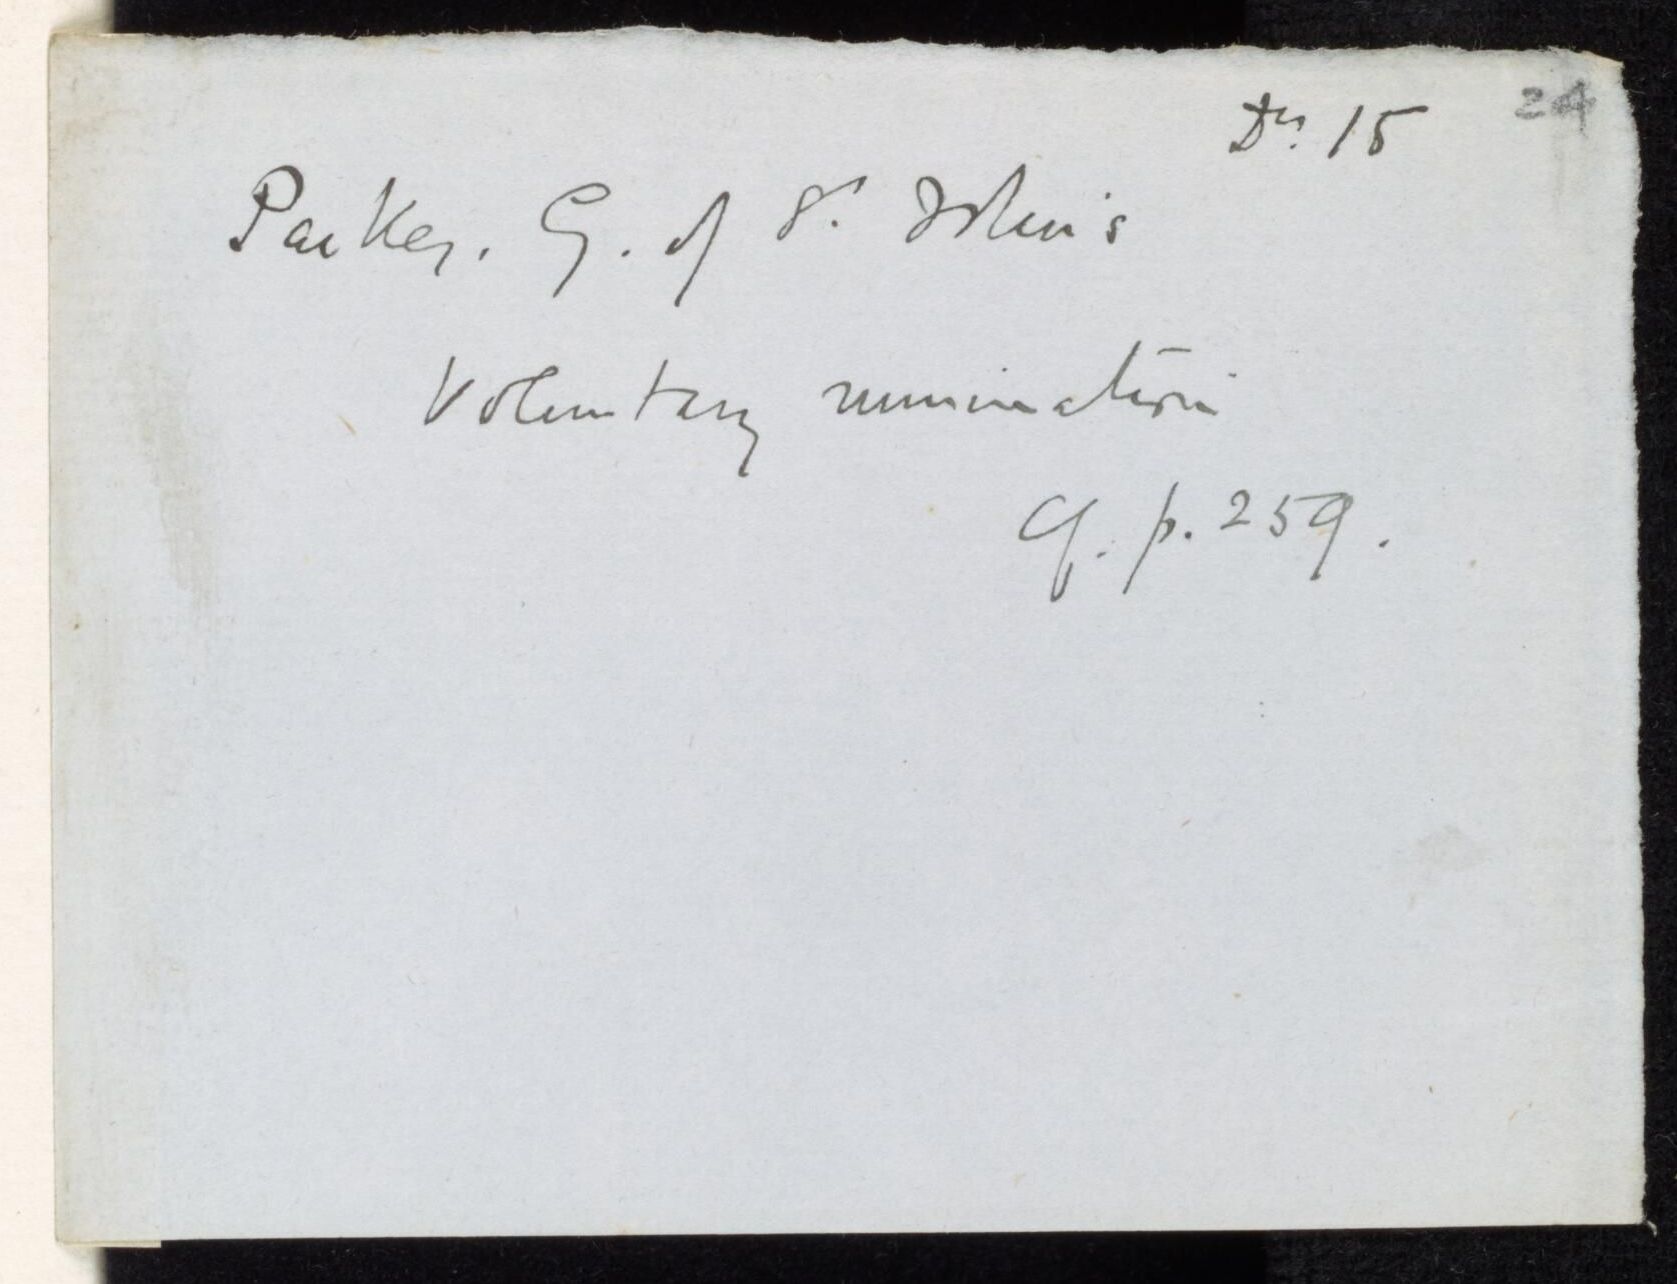 24
15
Parker. G. of St. John's
Voluntary rumination
cf. p. 259.